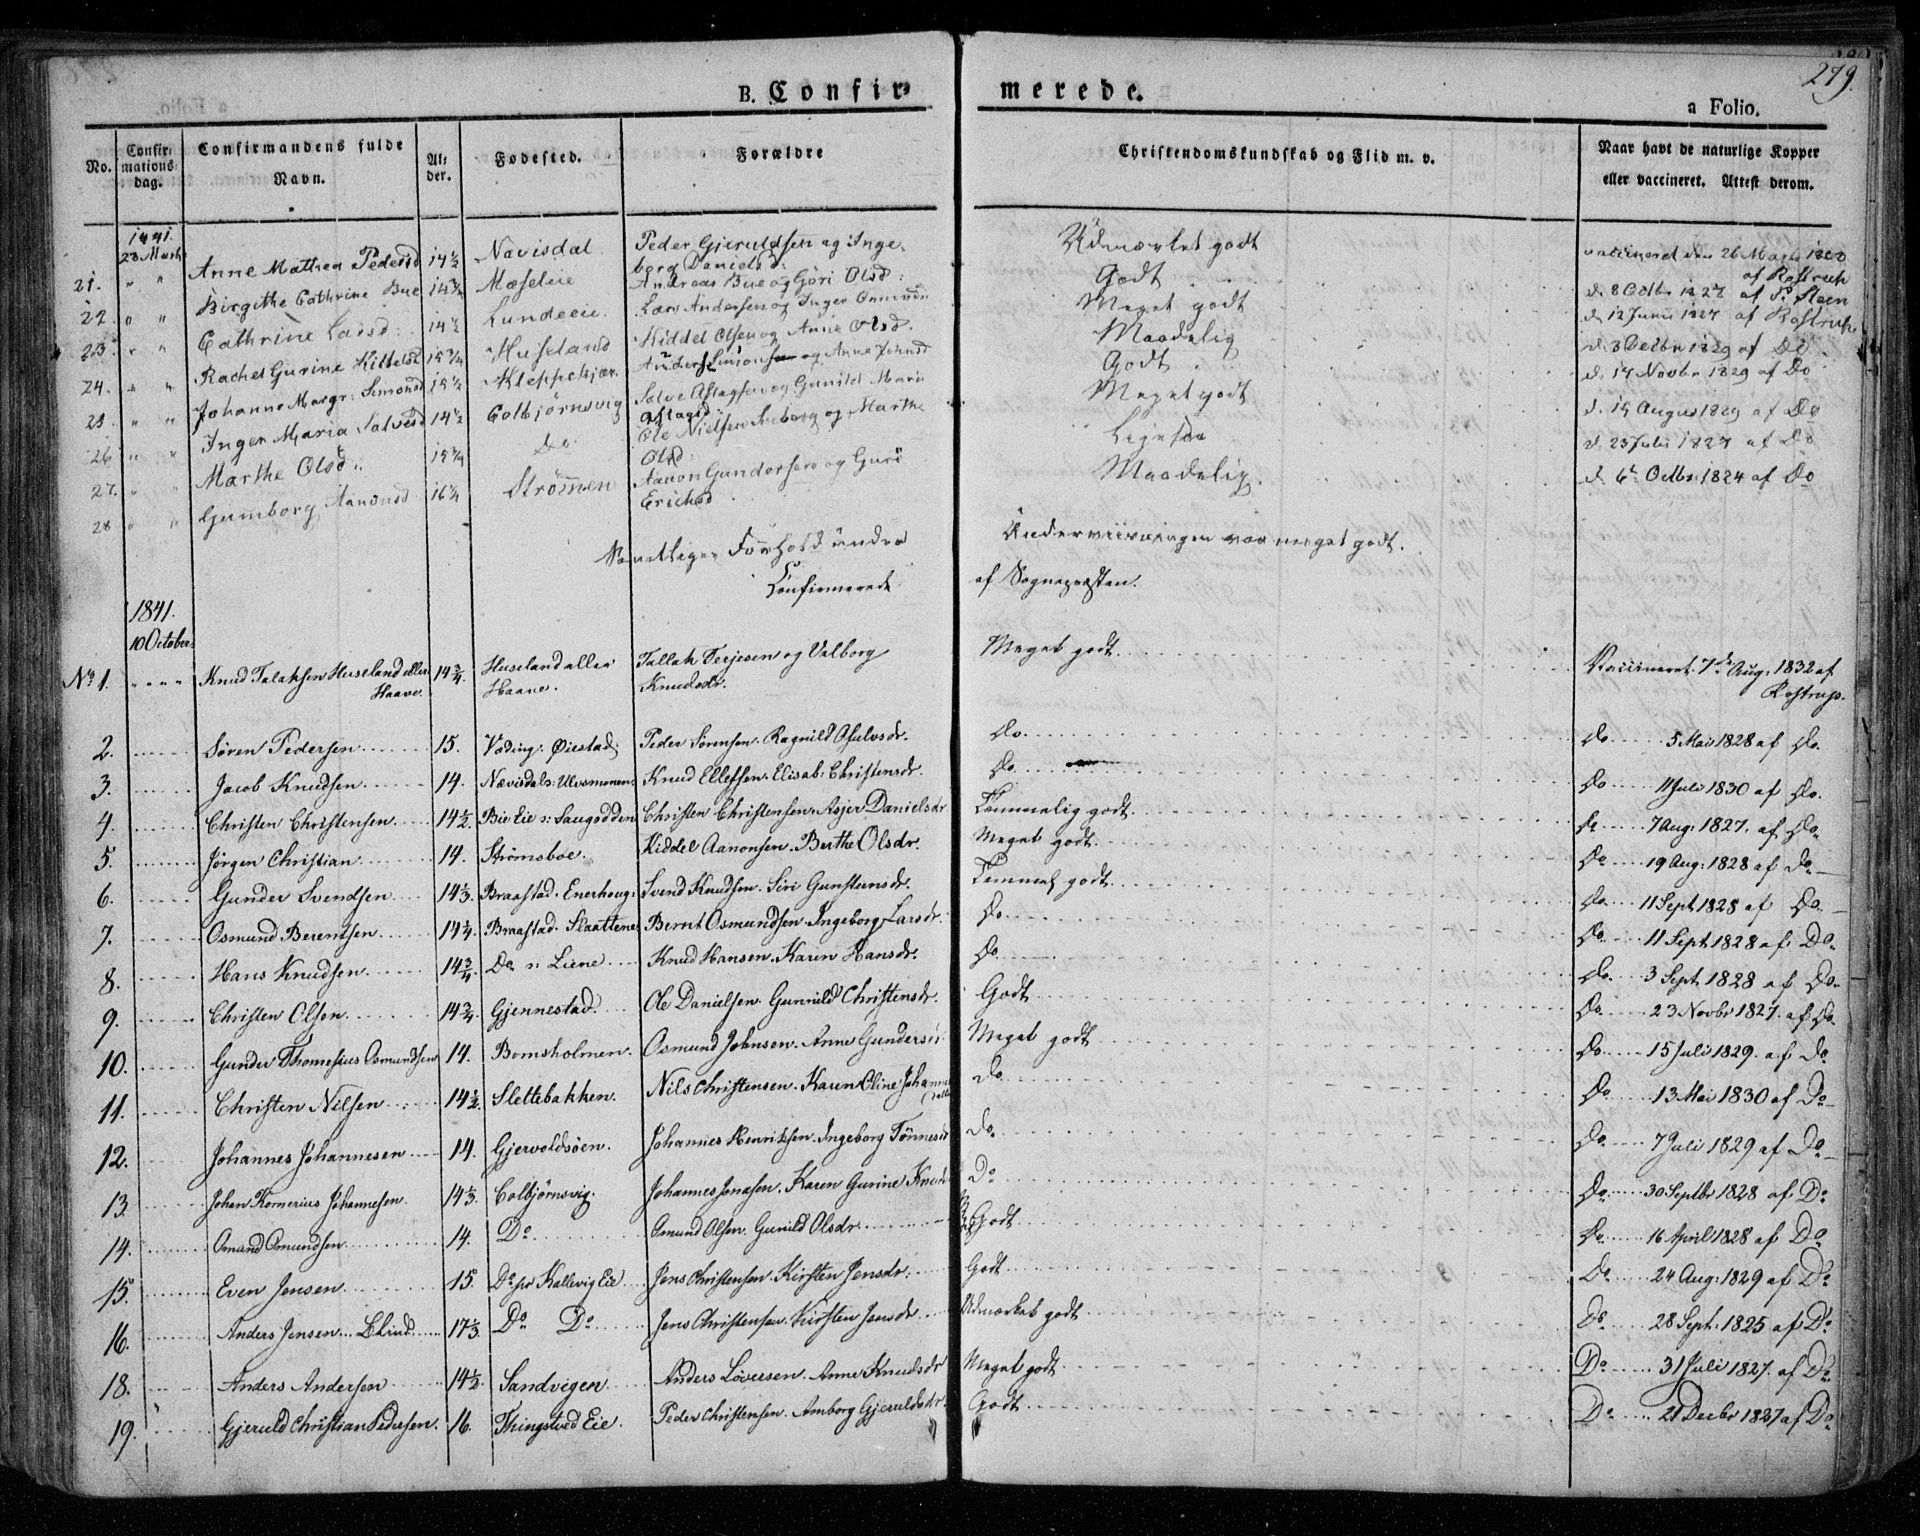 279.
B. Confir-merede.
a Folio.
No. Confir-mations-dag. Confirmandens fulde Navn. Al-der. Fødested. Forældre Christendomskundskab og Flid m. v. Naar havt de naturlige Kopper eller vaccineret. Attest derom.
1841.
21. 28 Marts Anne Mathea Pedersd 14½ Nævisdal Peder Gjeruldsen og Ingeborg Danielsd: Udmærket godt vaccineret den 26 af Rostrup
22. " " Birgithe Cathrine Bue 14¾ Mæseleie Andreas Bue og Gori Olsd: Godt d. 8 Octbr 1827 af P. Steen
23. " " Cathrine Larsd: 14½ Lundeeie Lars Andersen og Inger Meget godt d. 12 Junii 1827 af Rostrup
24. " " Rachel Gurine Kittelsd 15¾ Huseland Kiddel Olsen og Anne Olsd. Maadelig d. 3 Decbr 1829 af Do
25. " " Johanne Margr: Simonsd 15½ Kleppekjær Anders Simonsen og Anne Johnsd Godt d. 14 Novbr 1829 af Do
26 " " Inger Maria Salvesd 14½ Colbjørnsvig Salve Aslagsen og Gunild Maria Aslagsd: Meget godt d. 19 August 1829 af Do
27. " " Marthe Olsd: 15¾ Do Ole Nielsen og Marthe Olsd d. 23 Julii 1827 af Do
28 " " Gumborg Aanonsd 16¼ Strømmen Aanon Gundersen og Guri Erichsd Maadelig. d. 6t Octbr: 1824 af Do
Forhold under Underviisningen var meget godt.
Confirmerede af Sognepræsten.
1841.
10 October
No 1. " " " " Knud Talaksen Huseland eller Haave. 14¾ Huseland eller Haave. Tallak Terjesen og Valborg Knudsdr. Meget godt Vaccineret 7de Aug: 1832 af Rostrup.
2. Søren Pedersen 15. Væding: Øiestad: Peder Sørensen. Ragnild Asulvsdr. Do. Do 5 Mai 1828 af Do.
3. Jacob Knudsen 14. Nævisdals: Ulvsmonen: Knud Ellefsen. Elisab: Christensdr. Do Do 11 Juli 1830 af Do.
4. Christen Christensen 14½. Bie Eie s: Saugodden Christen Christensen. Asjer Danielsdr Temmelig godt Do 7 Aug: 1827. af Do.
5. Jørgen Christian 14. Strømsboe. Kiddel Aanonsen. Berthe Olsdr. Meget godt. Do 19 Aug: 1828 af Do
6. Gunder Svendsen 14⅓. Braastad. Enerhoug: Svend Knudsen. Siri Gunsteinsdr. Temmel: godt Do 11 Sept 1828 af Do
7. Osmund Berentsen 14¼. Braastad. Slaattene Bernt Osmundsen. Ingeborg Larsdr. Do Do 11 Sept 1828 af Do.
8. Hans Knudsen 14¾. Do s: Liene Knud Hansen. Karen Hansdr. Do Do. 3 Sept. 1828 af Do.
9. Christen Olsen 14¾. Gjennestad. Ole Danielsen. Gunnild Christensdr. Godt Do 23 Novbr 1827. af Do.
10. Gunder Thomesius Osmundsen 14. Bomsholmen. Osmund Johnsen. Anne Gundersdr Meget godt Do 15 Juli 1829. af Do
11. Christen Nilsen 14½. Slettebakken. Nils Christensen. Karen Oline Johannesdatter Do Do 13 Mai 1830 af Do
12. Johannes Johannesen 14. Gjervoldsöen. Johannes Henriksen. Ingeborg Tønnesdr Do Do 7 Juli 1829 af Do
13. Johan Kornerius Johannesen 14⅓. Colbjørnsvig. Johannes Jonasen. Karen Gurine Knudsdr Do Do 30 Septbr 1828 af Do
14. Omund Omundsen 14. Do Omund Olsen. Gunild Olsdr Godt Do 16 April 1828 af Do
15. Even Jensen 15. Do pr Kallevig Eie Jens Christensen. Kirsten Jensdr. Godt Do 24 Aug: 1829 af Do
16. Anders Jensen Blind 17⅓. Do Do Jens Christensen. Kirsten Jensdr Udmærket godt Do 28 Sept: 1825 af Do
18. Anders Andersen 14½ Sandvigen Anders Løveesen. Anne Knudsdr Meget godt Do 31 Juli 1827. af Do
19. Gjeruld Christian Pedersen. 16. Thingstved Eie. Peder Christensen. Amborg Gjeruldsdr Godt Do 21 Decbr 1827 af Do